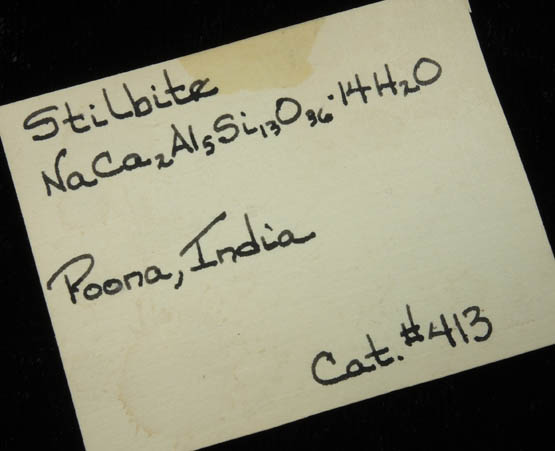 Stilbite
NaCa₂Al₅Si₁₃O₃₆·14H₂O
Poona, India
Cat. #413